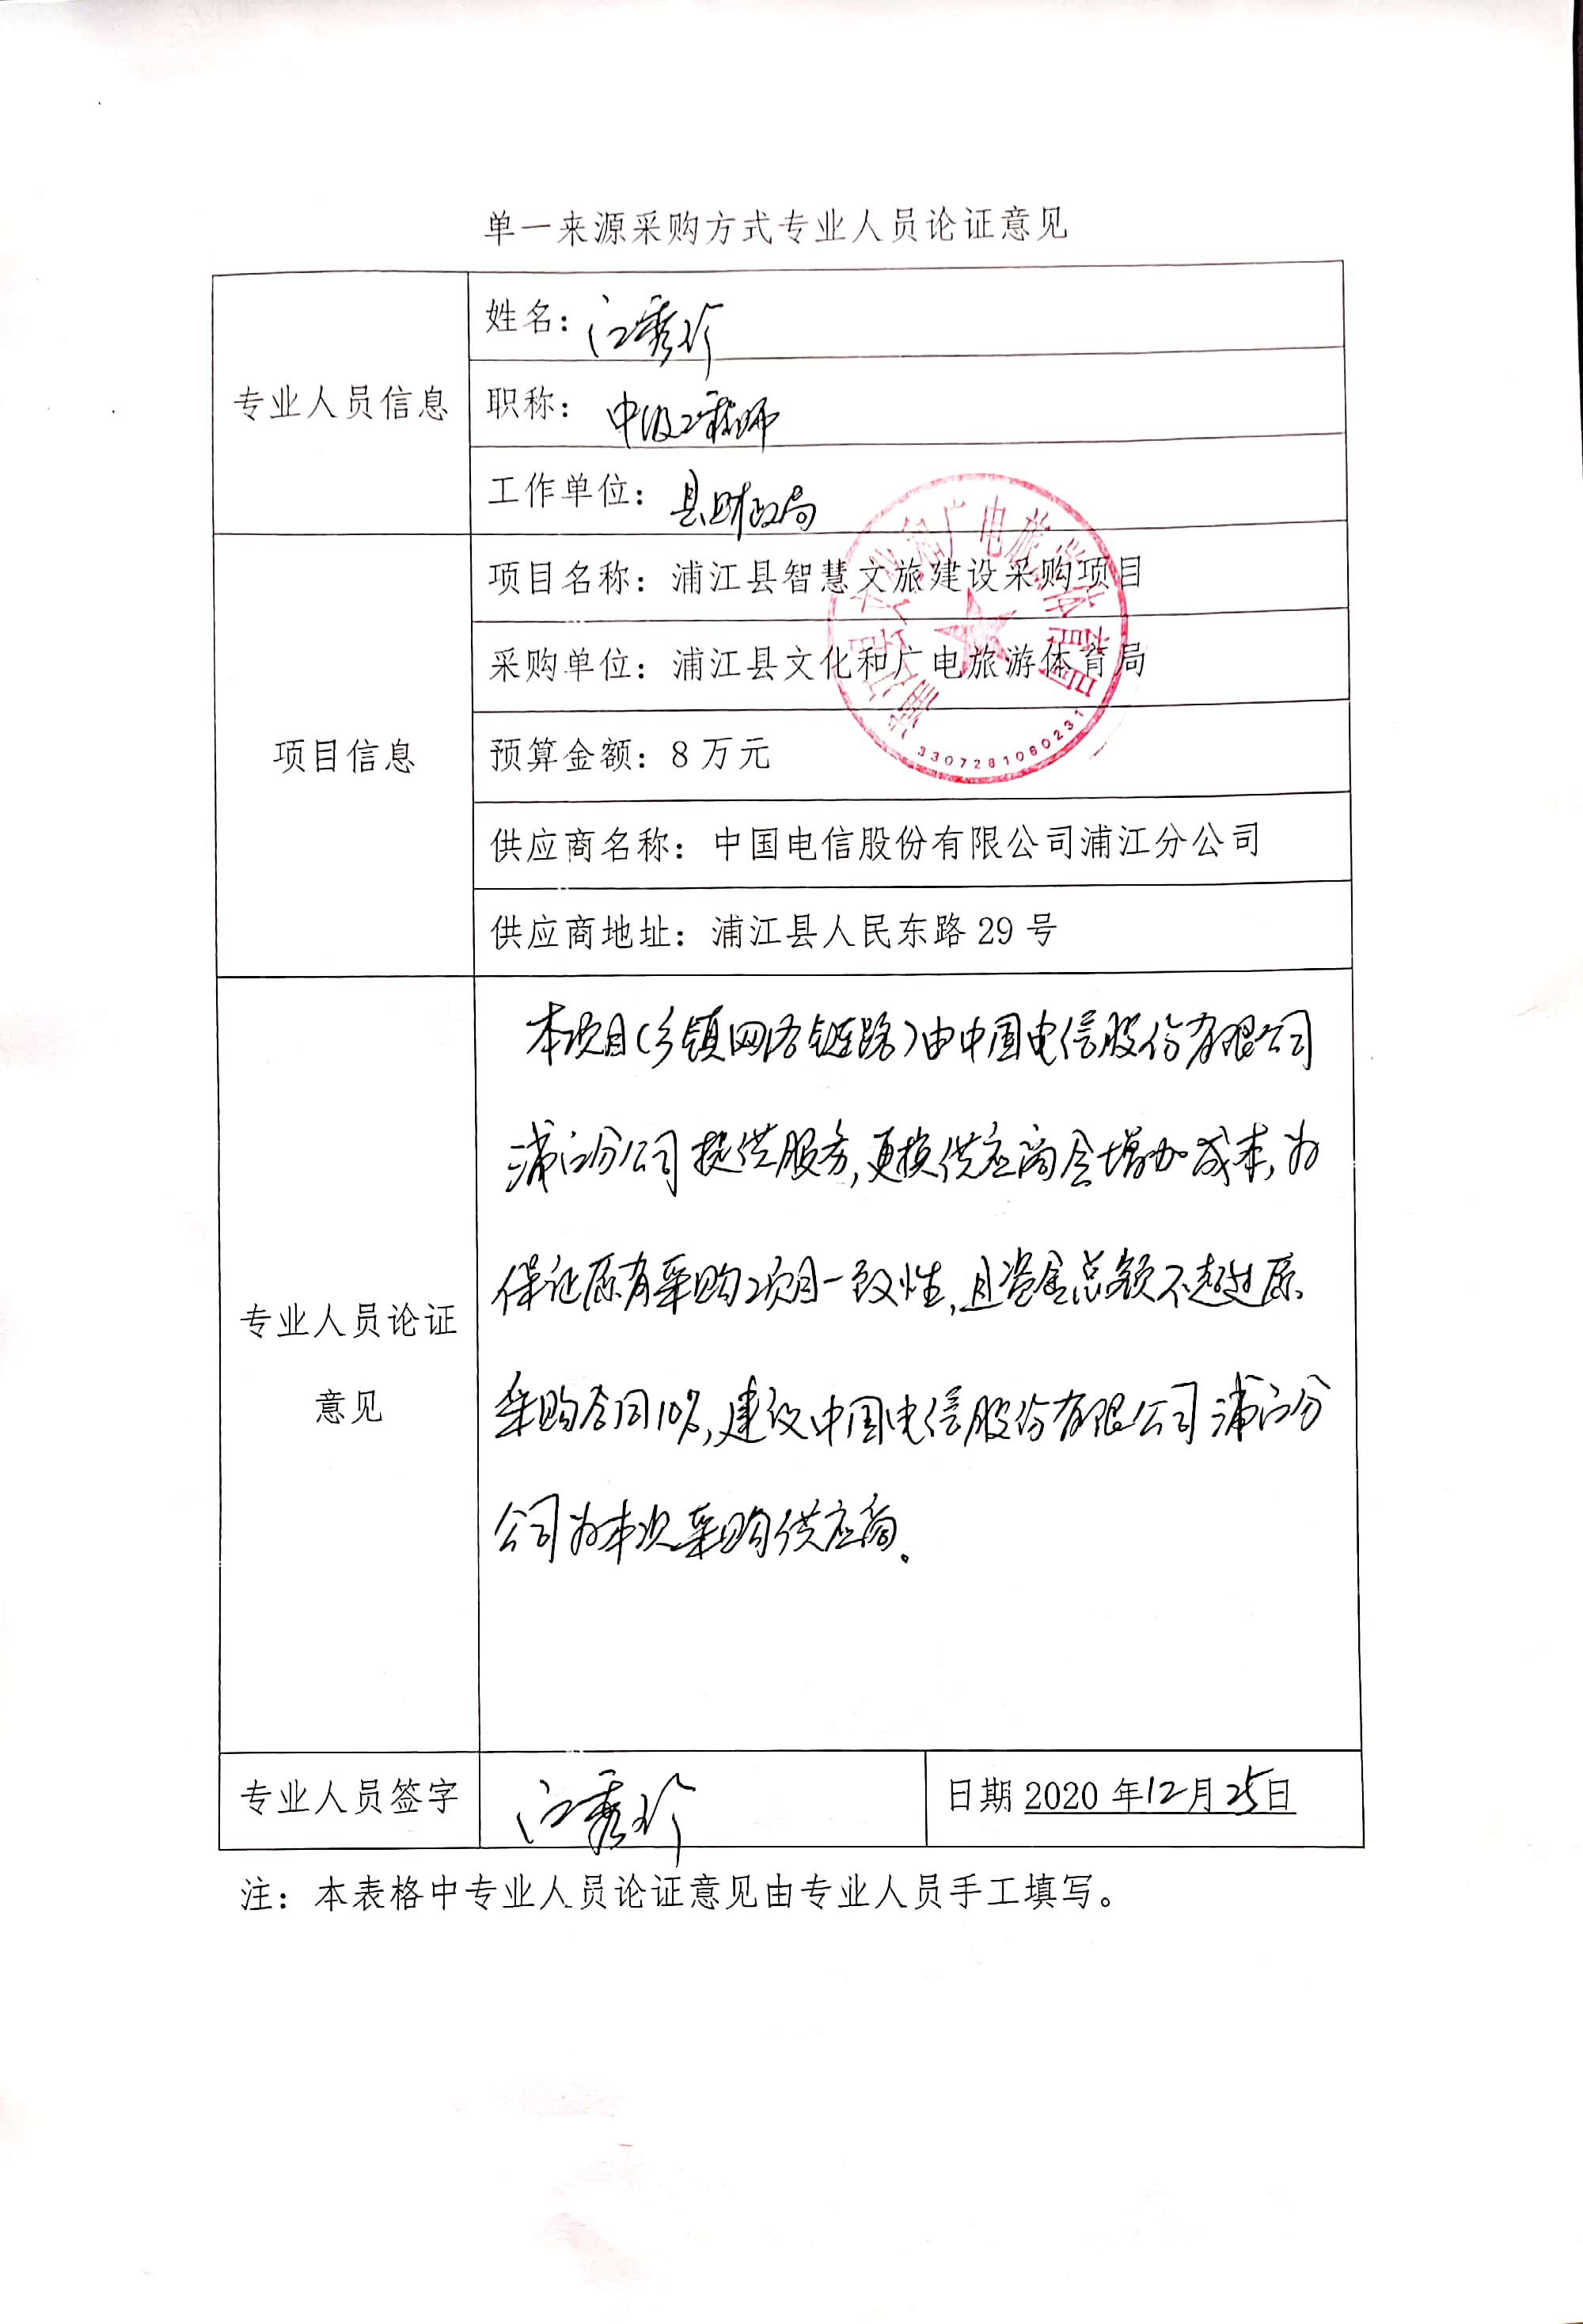 单一来源采购方式专业人员论证意见
专业人员信息
姓名：江秀珍
职称：中级工程师
工作单位：县财政局
项目信息
项目名称：浦江县智慧文旅建设采购项目
采购单位：浦江县文化和广电旅游体育局
预算金额：8万元
供应商名称：中国电信股份有限公司浦江分公司
供应商地址：浦江县人民东路29号
浦江县文化和广电旅游体育局
3307281060231
专业人员论证
意见
本项目(乡镇网络链路)由中国电信股份有限公司
浦江分公司提供服务,更换供应商会增加成本,为
保证原有采购项目一致性,且资金总额不超过原
采购合同10%,建议中国电信股份有限公司浦江分
公司为本次采购供应商。
专业人员签字
江秀珍
日期 2020年12月25日
注：本表格中专业人员论证意见由专业人员手工填写。